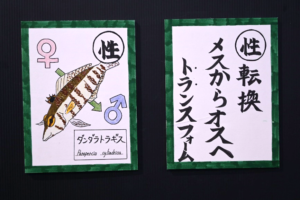 性
ダンダラトラギス
Parapercis cylindrica
性転換
メスからオスへ
トランスフォーム